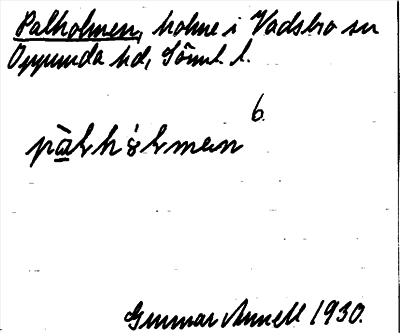 Palholmen, holme i Vadsbro sn
Oppunda hd, Söml. l.
6.
pàlhólmen
Gunnar Annell 1930.